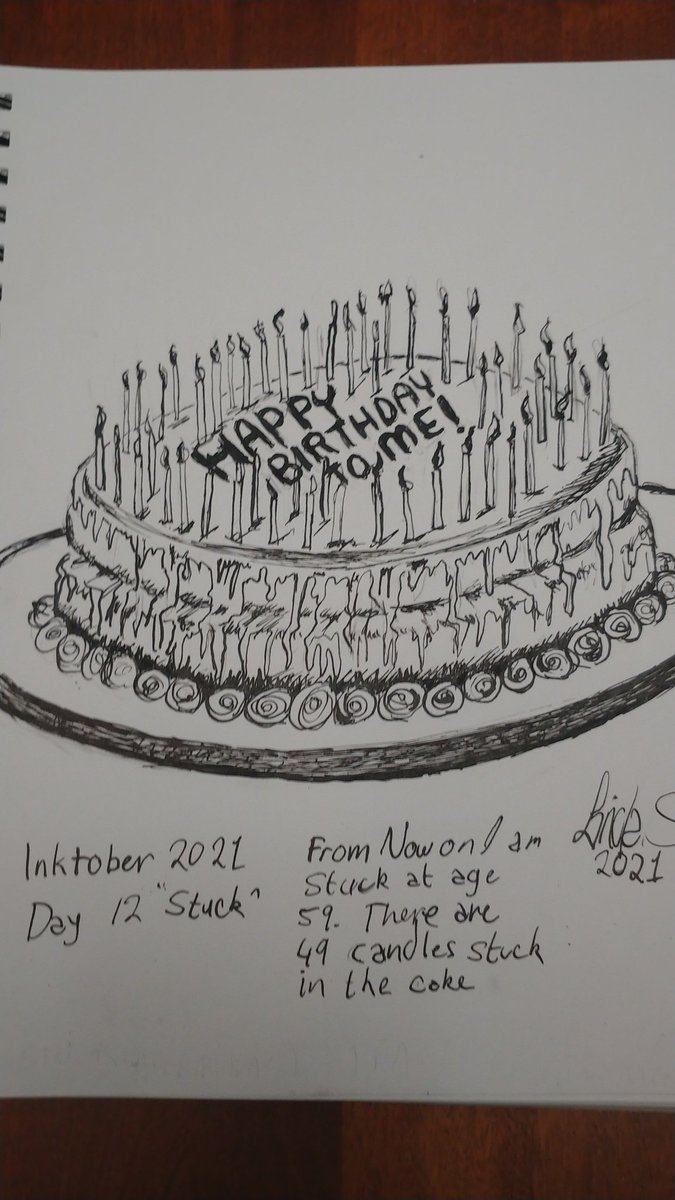 HAPPY
BIRTHDAY
TO ME!
Inktober 2021
Day 12 "Stuck"
From Now on I am
Stuck at age
59. There are
49 candles stuck
in the cake
2021